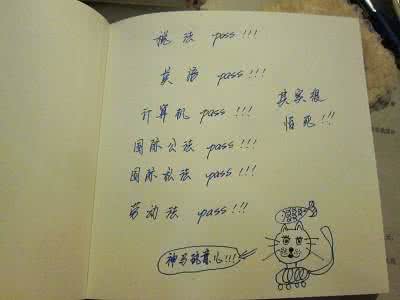 税法 pass!!!
英语 pass!!!
计算机 pass!!!
其实很
怕死!!!
国际公法 pass!!!
国际私法 pass!!!
劳动法 pass!!!
神马